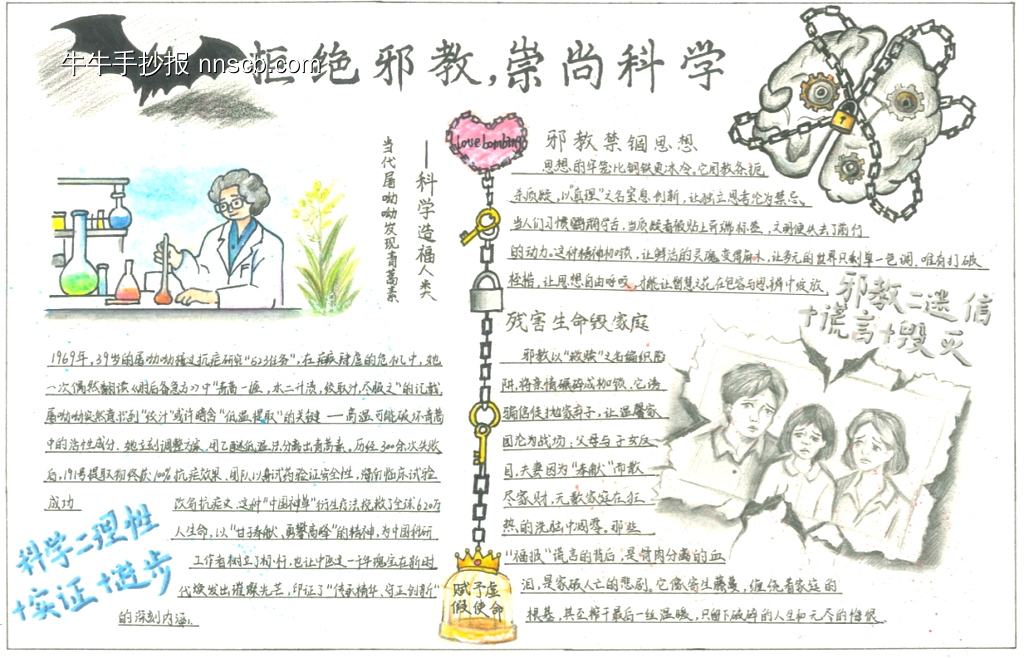 牛牛手抄报 nnscb.com
拒绝邪教,崇尚科学
——科学造福人类
当代屠呦呦发现青蒿素
1969年,39岁的屠呦呦接过抗疟研究"523任务",在疟疾肆虐的危机中,她
一次偶然翻读《肘后备急方》中"青蒿一握,水二升渍,绞取汁,尽服之"的记载,
屠呦呦突然意识到"绞汁"或许暗含"低温提取"的关键——高温可能破坏青蒿
中的活性成分。她立刻调整方案,用乙醚低温法分离出青蒿素。历经200余次失败
后,191号提取物终获100%抗疟效果,团队以身试药验证安全性,
成功
改写抗疟史。这种"中国神草"衍生疗法挽救了全球620万
人生命,以"甘于奉献、勇攀高峰"的精神,为中国科研
工作者树立了标杆,也让中医这一件瑰宝在新时
代焕发出璀璨光芒,印证了"传承精华,守正创新"
的深刻内涵。
科学=理性
+实证+进步
Love bombing
赋予虚
假使命
邪教禁锢思想
思想的牢笼比钢铁更冰冷。它用教条扼
杀质疑,以"真理"之名窒息创新,让独立思考沦为禁忌。
当人们习惯 ,当质疑者被贴上异端标签,文明便失去了前行
的动力。这种精神枷锁,让鲜活的灵魂变得麻木,让多元的世界只剩单一色调。唯有打破
桎梏,让思想自由呼吸,才能让智慧之花在包容与思辨中绽放。
邪教=迷信
+谎言+毁灭
残害生命毁家庭
邪教以"救赎"之名编织陷
阱,将亲情碾碎成枷锁。它诱
骗信徒抛家弃子,让温馨家
园沦为战场:父母与子女反
目,夫妻因为"奉献"而散
尽家财,无数家庭在狂
热的洗脑中凋零。那些
"福报"谎言的背后,是骨肉分离的血
泪,是家破人亡的悲剧。它像寄生藤蔓,缠绕着家庭的
根基,直至榨干最后一丝温暖,只留下破碎的人生和无尽的悔恨。